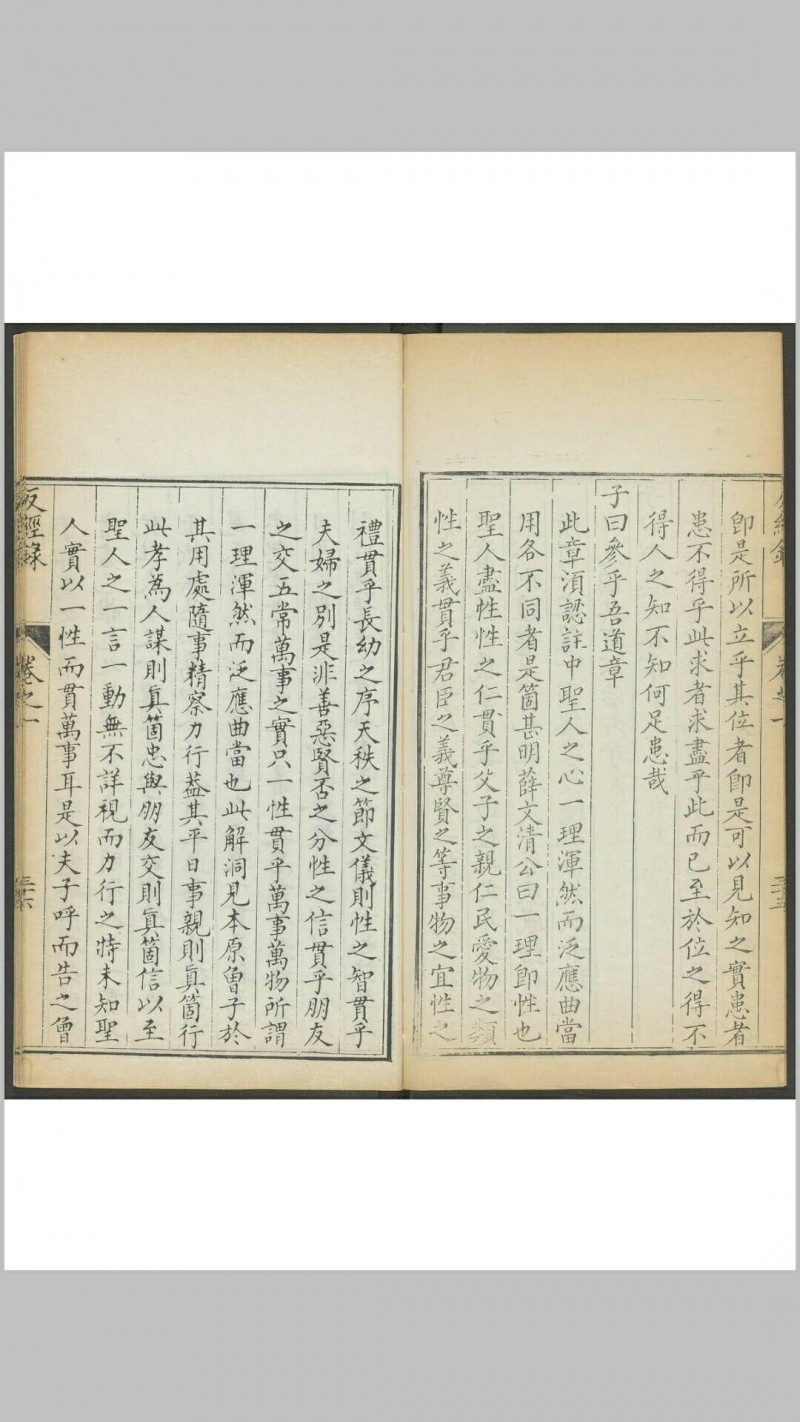 卽是所以立乎其位者卽是可以見知之實患者
患不得乎此求者求盡乎此而已至於位之得不
得人之知不知何足患哉
子曰參乎吾道章
此章須認註中聖人之心一理渾然而泛應曲當
用各不同者是箇甚明薛文清公曰一理卽性也
聖人盡性性之仁貫乎父子之親仁民愛物之類
性之義貫乎君臣之義尊賢之等事物之宜性之
禮貫乎長幼之序天秩之節文儀則性之智貫乎
夫婦之別是非善惡賢否之分性之信貫乎朋友
之交五常萬事之實只一性貫乎萬事萬物所謂
一理渾然而泛應曲當也此解洞見本原曾子於
其用處隨事精察力行葢其平日事親則眞箇行
此孝爲人謀則眞箇忠與朋友交則眞箇信以至
聖人之一言一動無不詳視而力行之特未知聖
人實以一性而貫萬事耳是以夫子呼而告之曾
反經錄
卷之一
三十六